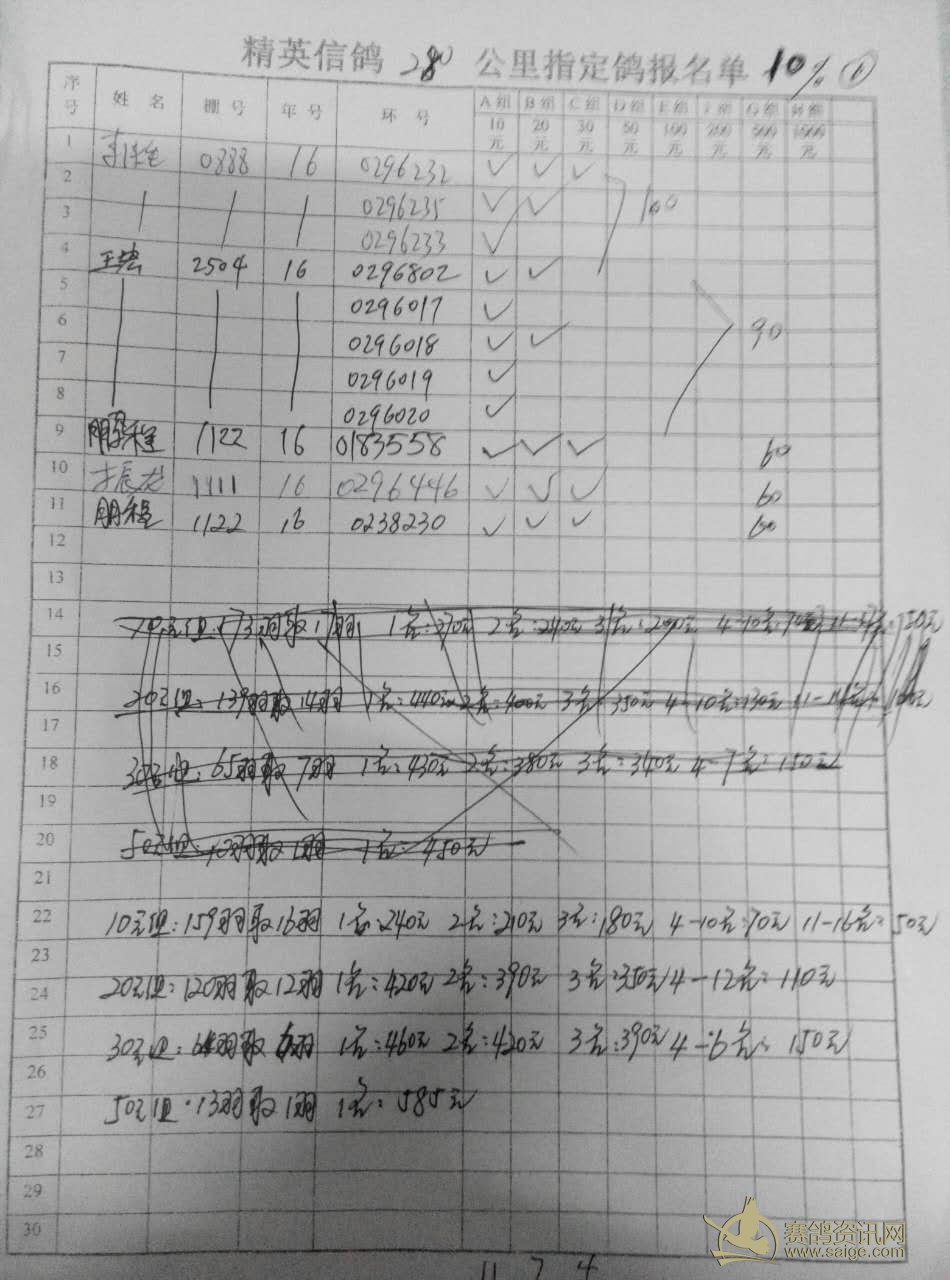 精英信鸽 280 公里指定鸽报名单 10% ①
序号 姓名 棚号 年号 环号 A组 B组 C组 D组 E组 F组 G组 H组
10元 20元 30元 50元 100元 200元 500元 1000元
1 0888 16 0296232 ✓ ✓ ✓
2 0296235 ✓ ✓ 100
3 0296233 ✓
4 2504 16 0296802 ✓ ✓
5 0296017 ✓
6 0296018 ✓ ✓ 90
7 0296019 ✓
8 0296020 ✓
9 鹏程 1122 16 0183558 ✓ ✓ ✓ 60
10 振龙 1111 16 0296446 ✓ ✓ ✓ 60
11 鹏程 1122 16 0238230 ✓ ✓ ✓ 60
12
13
14 1名:370元 2名:240元 3名:200元
15
16 20元组:139羽取14羽 1名:440元 2名:400元 3名:350元 4-10名:130元
17
18 30元组:65羽取7羽 1名:430元 2名:380元 3名:340元 4-7名:150元
19
20 50元组:10羽取1羽 1名:450元
21
22 10元组:159羽取16羽 1名:240元 2名:210元 3名:180元 4-10名:70元 11-16名:50元
23
24 20元组:120羽取12羽 1名:420元 2名:390元 3名:350元 4-12名:110元
25 30元组:64羽取6羽 1名:460元 2名:420元 3名:390元 4-6名:150元
26
27 50元组:13羽取1羽 1名:585元
28
29
30
赛鸽资讯网
www.saige.com
11 7 4